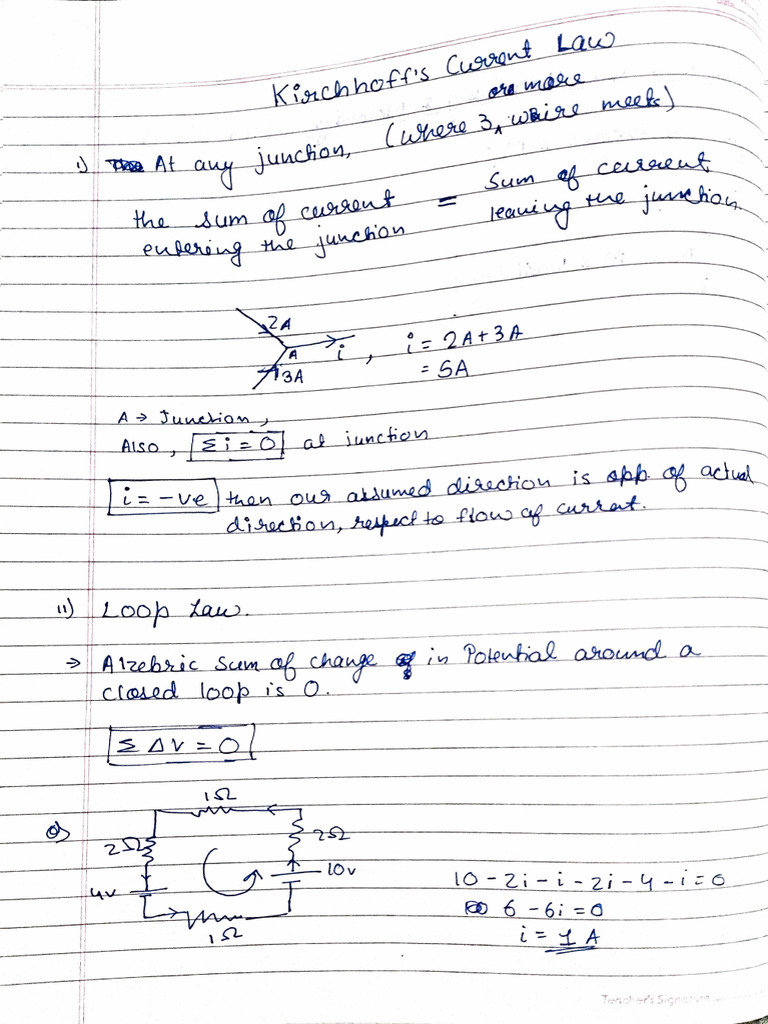 Kirchhoff's Current Law
or more
i) At any junction, (where 3 wire meets)
the sum of current = Sum of current
entering the junction leaving the junction
2A
A i, i = 2A+3A
3A = 5A
A → Junction,
Also, Σi = 0 at junction
i = -ve then our assumed direction is opp. of actual
direction, respect to flow of current.
ii) Loop Law.
→ Alzebric sum of change in Potential around a
closed loop is 0.
Σ ΔV = 0
1Ω
Q)
2Ω 2Ω
10v
4v
1Ω
10 - 2i - i - 2i - 4 - i = 0
6 - 6i = 0
i = 1 A
Teacher's Signature